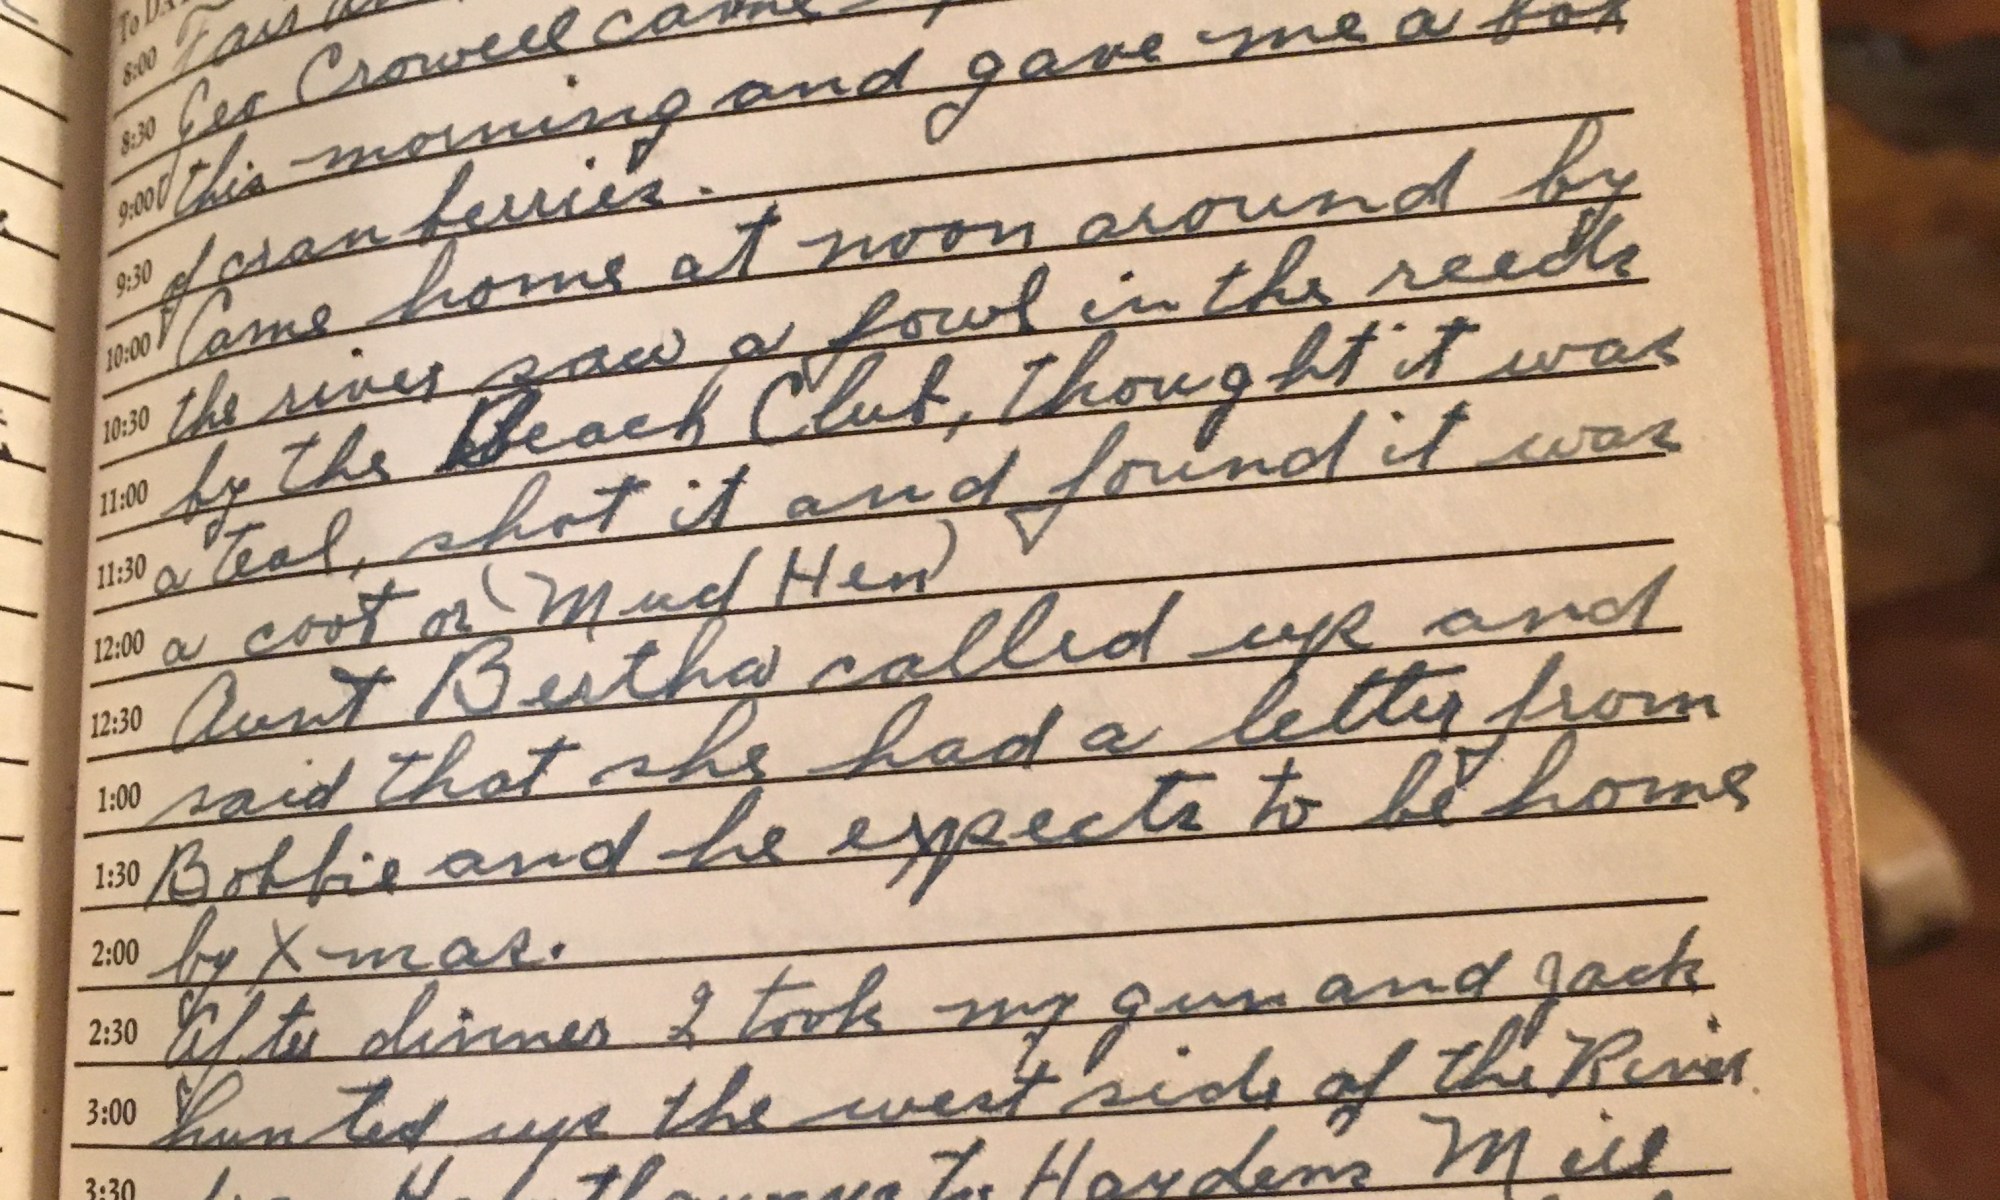 To DA
8:00 Fair
8:30 Geo Crowell came
9:00 this morning and gave me a box
9:30 of cranberries.
10:00 Came home at noon around by
10:30 the river saw a fowl in the reeds
11:00 by the Beach Club, thought it was
11:30 a teal, shot it and found it was
12:00 a coot or (Mud Hen)
12:30 Aunt Bertha called up and
1:00 said that she had a letter from
1:30 Bobbie and he expects to be home
2:00 by X-mas.
2:30 After dinner I took my gun and Jack
3:00 hunted up the west side of the River
3:30 to Haydens Mill